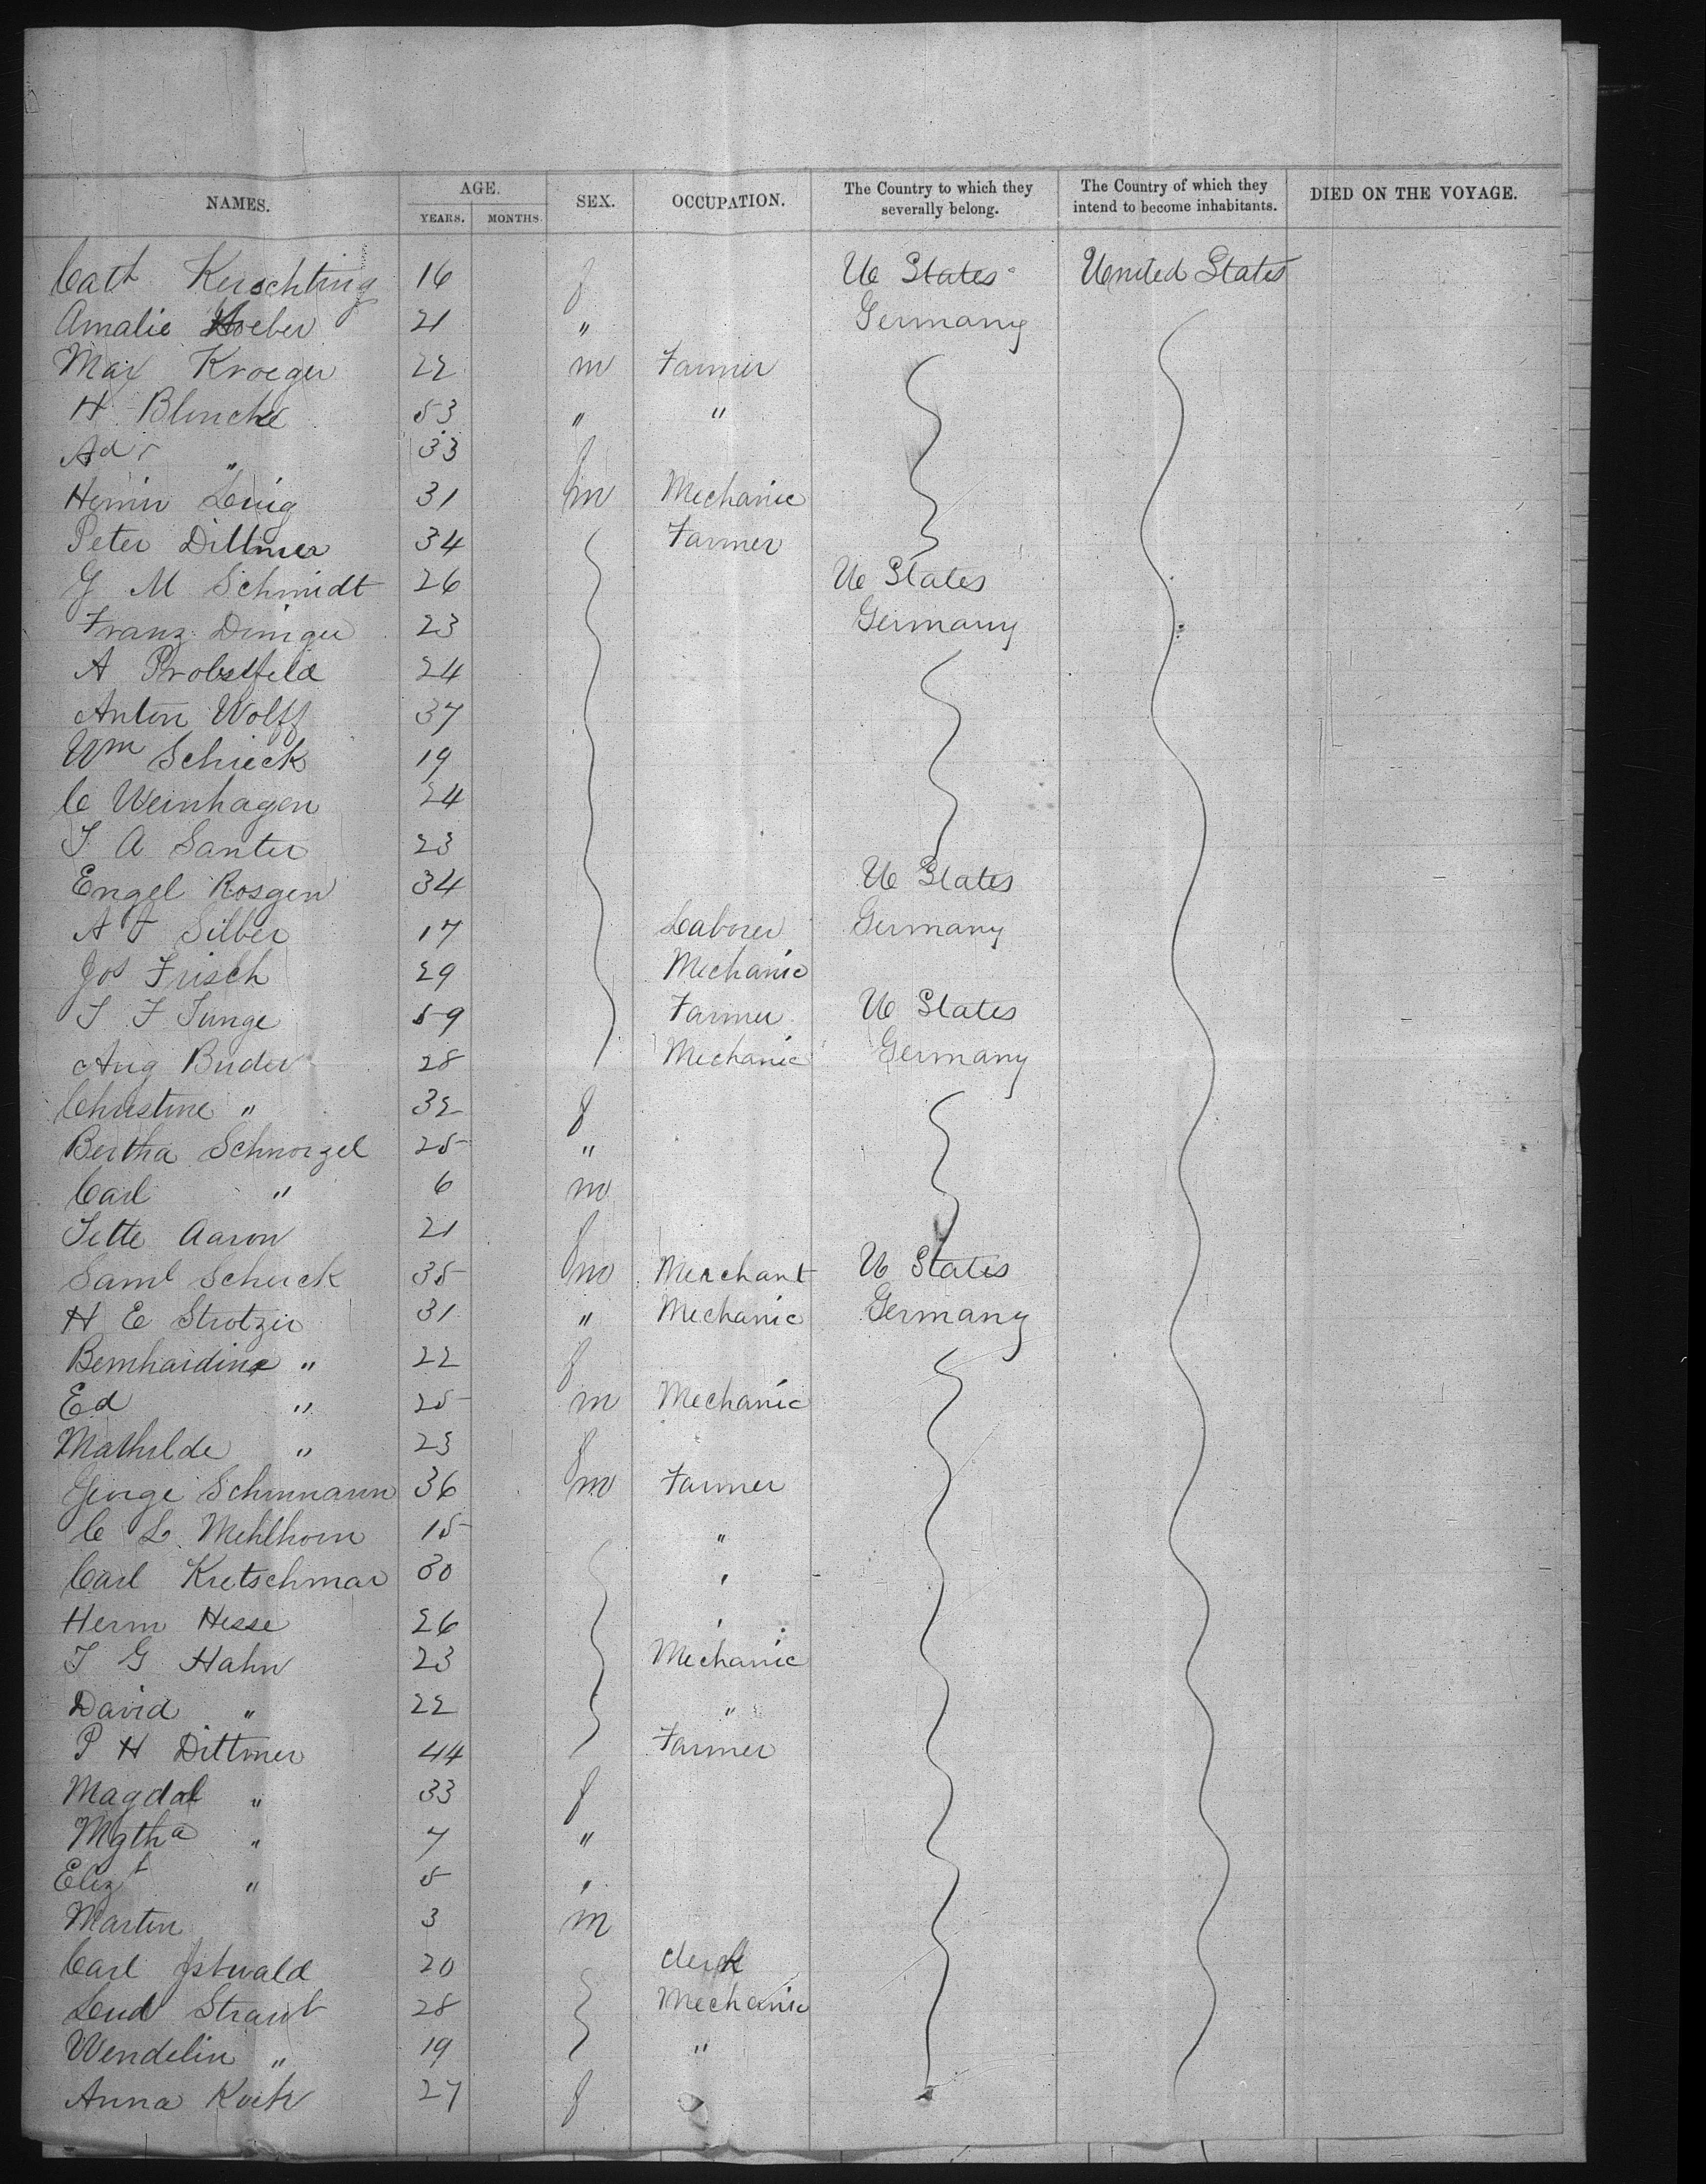 NAMES. AGE. SEX. OCCUPATION. The Country to which they severally belong. The Country of which they intend to become inhabitants. DIED ON THE VOYAGE.
YEARS. MONTHS.
Cath Kerschting 16 f U States United States
Amalie Hoeber 21 " Germany
Max Kroeger 22 m Farmer
H Blincke 53 " "
Ad " 33 f
31 m Mechanic
Peter Dittmer 34 Farmer
G M Schmidt 26 U States
Franz Diniger 23 Germany
A Probstfeld 24
Anton Wolff 37
Wm Schieck 19
C Weinhagen 24
J A Santer 23
Engel Rosgen 34 U States
A F Silber 17 Laborer Germany
Jos Frisch 29 Mechanic
J F Junge 59 Farmer U States
Aug Buder 28 Mechanic Germany
Christine " 32 f
Bertha Schnorzel 25 "
Carl " 6 m
Jette Aaron 21 f
Saml Schuck 35 m Merchant U States
H E Strotzer 31 " Mechanic Germany
Bernhardine " 22 f
Ed " 25 m Mechanic
Mathilde " 23 f
George Schumann 36 m Farmer
C L Mehlhorn 15 "
Carl Kretschmar 30 "
Herm Hesse 26 "
J G Hahn 23 Mechanic
David " 22 "
P H Dittmer 44 Farmer
Magdal " 33 f
Mgtha " 7 "
Elizt " 5 "
Martin 3 m
Carl 20 Clerk
Lud Straub 28 Mechanic
Wendelin " 19 "
Anna Koch 27 f